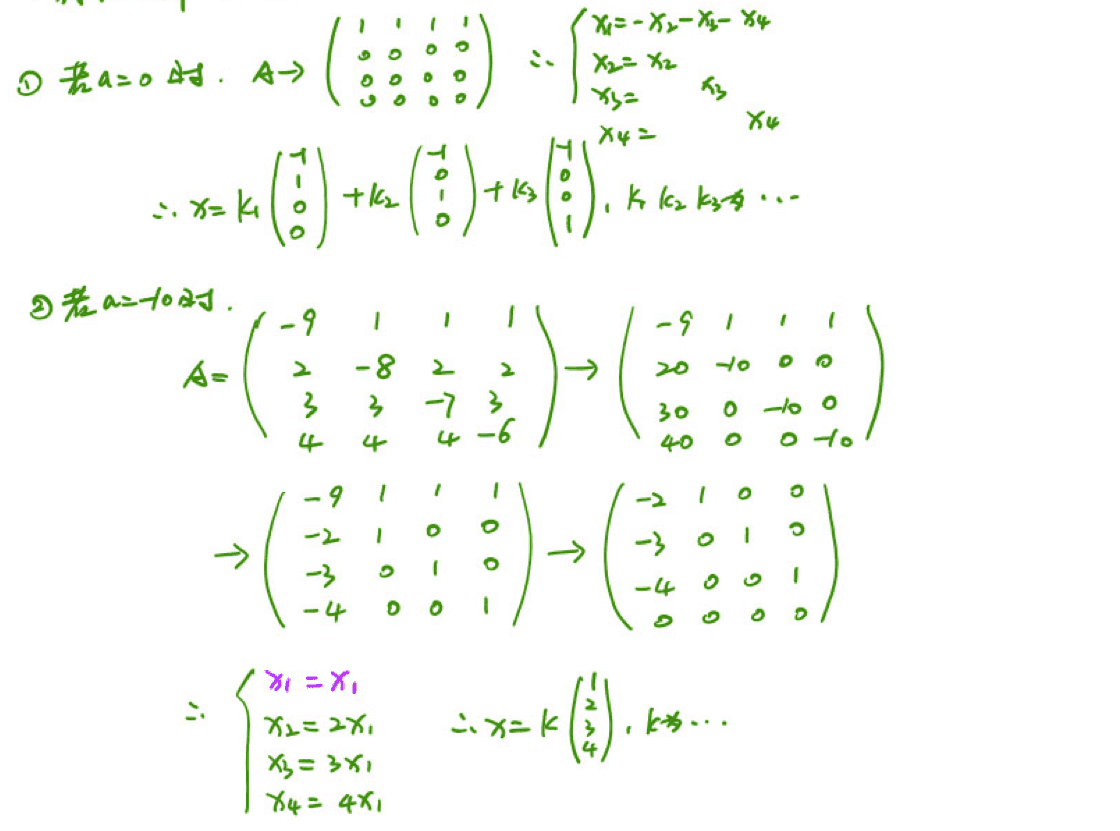 ① 若a=0时. A→ (1 1 1 1; 0 0 0 0; 0 0 0 0; 0 0 0 0) ∴ {x₁=-x₂-x₃-x₄; x₂=x₂; x₃= x₃; x₄= x₄
∴ x=k₁(-1 1 0 0)+k₂(-1 0 1 0)+k₃(-1 0 0 1), k₁ k₂ k₃为…
② 若a=-10时.
A= (-9 1 1 1; 2 -8 2 2; 3 3 -7 3; 4 4 4 -6) → (-9 1 1 1; 20 -10 0 0; 30 0 -10 0; 40 0 0 -10)
→ (-9 1 1 1; -2 1 0 0; -3 0 1 0; -4 0 0 1) → (-2 1 0 0; -3 0 1 0; -4 0 0 1; 0 0 0 0)
∴ {x₁=x₁; x₂=2x₁; x₃=3x₁; x₄=4x₁ ∴ x=k(1 2 3 4), k为…